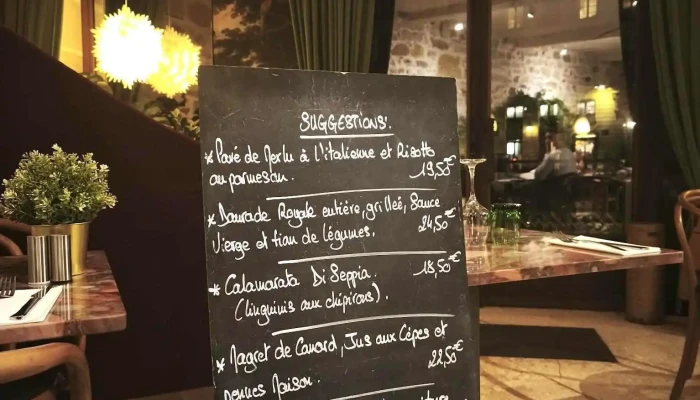 SUGGESTIONS:
* Pavé de Merlu à l'italienne et Risotto
au parmesan. 19,50€
* Daurade Royale entière, grillée, Sauce
Vierge et tian de légumes. 24,50€
* Calamarata Di Seppia. 18,50€
(linguinis aux chipirons).
* Magret de Canard, Jus aux Cèpes et
Pennes Maison. 22,50€